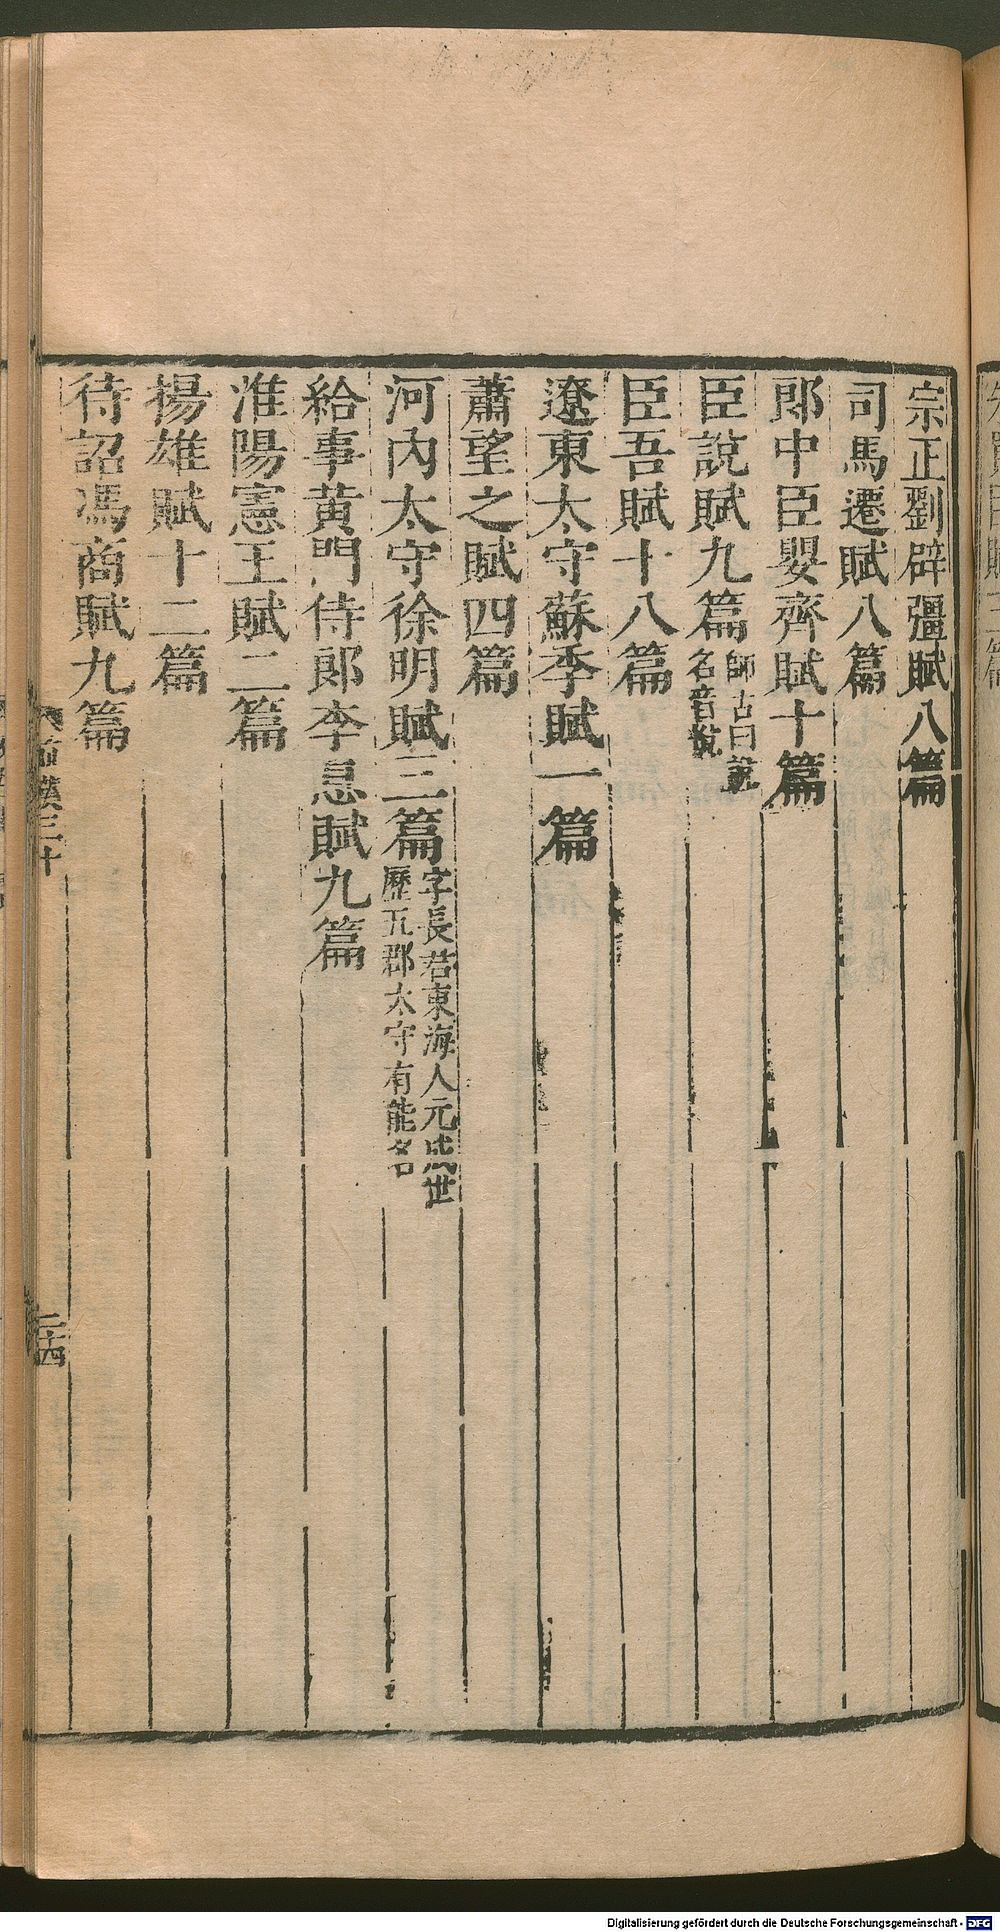 宗正劉辟彊賦八篇
司馬遷賦八篇
郎中臣嬰齊賦十篇
臣說賦九篇師古曰說
名音悅
臣吾賦十八篇
遼東太守蘇季賦一篇
蕭望之賦四篇
河內太守徐明賦三篇字長君東海人元成世
歷五郡太守有能名
給事黃門侍郎李息賦九篇
淮陽憲王賦二篇
揚雄賦十二篇
待詔馮商賦九篇
前漢三十
二十四
Digitalisierung gefördert durch die Deutsche Forschungsgemeinschaft - DFG